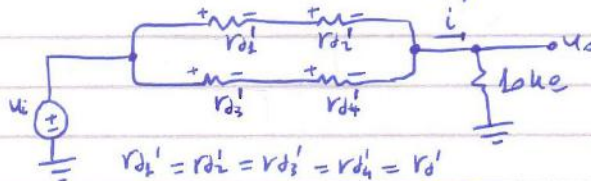 + − + − i
rd1' rd2' uo
+ − + −
rd3' rd4' 10kΩ
ui + −
rd1' = rd2' = rd3' = rd4' = rd'